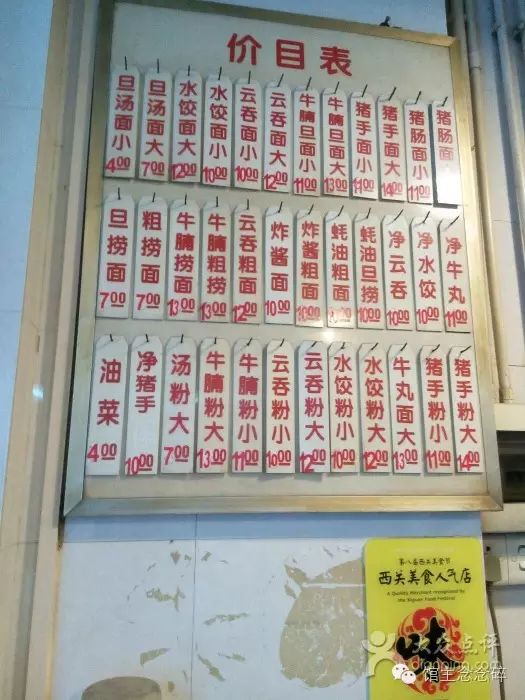 价目表
旦汤面小 4.00
旦汤面大 7.00
水饺面大 12.00
水饺面小 10.00
云吞面小 10.00
云吞面大 12.00
牛腩旦面小 11.00
牛腩旦面大 13.00
猪手面小 11.00
猪手面大 14.00
猪肠面小 11.00
猪肠面
旦捞面 7.00
粗捞面 7.00
牛腩捞面 13.00
牛腩粗捞 13.00
云吞粗面 12.00
炸酱面 10.00
炸酱粗面 10.00
蚝油粗面 9.00
蚝油旦捞 10.00
净云吞 10.00
净水饺 10.00
净牛丸 11.00
油菜 4.00
净猪手 10.00
汤粉大 7.00
牛腩粉大 13.00
牛腩粉小 11.00
云吞粉小 10.00
云吞粉大 12.00
水饺粉小 10.00
水饺粉大 12.00
牛丸面大 13.00
猪手粉小 11.00
猪手粉大 14.00
第八届西关美食节
西关美食人气店
A Quality Merchant recognized by
the Xiguan Food Festival
大众点评
dianping.com
馆主念念碎